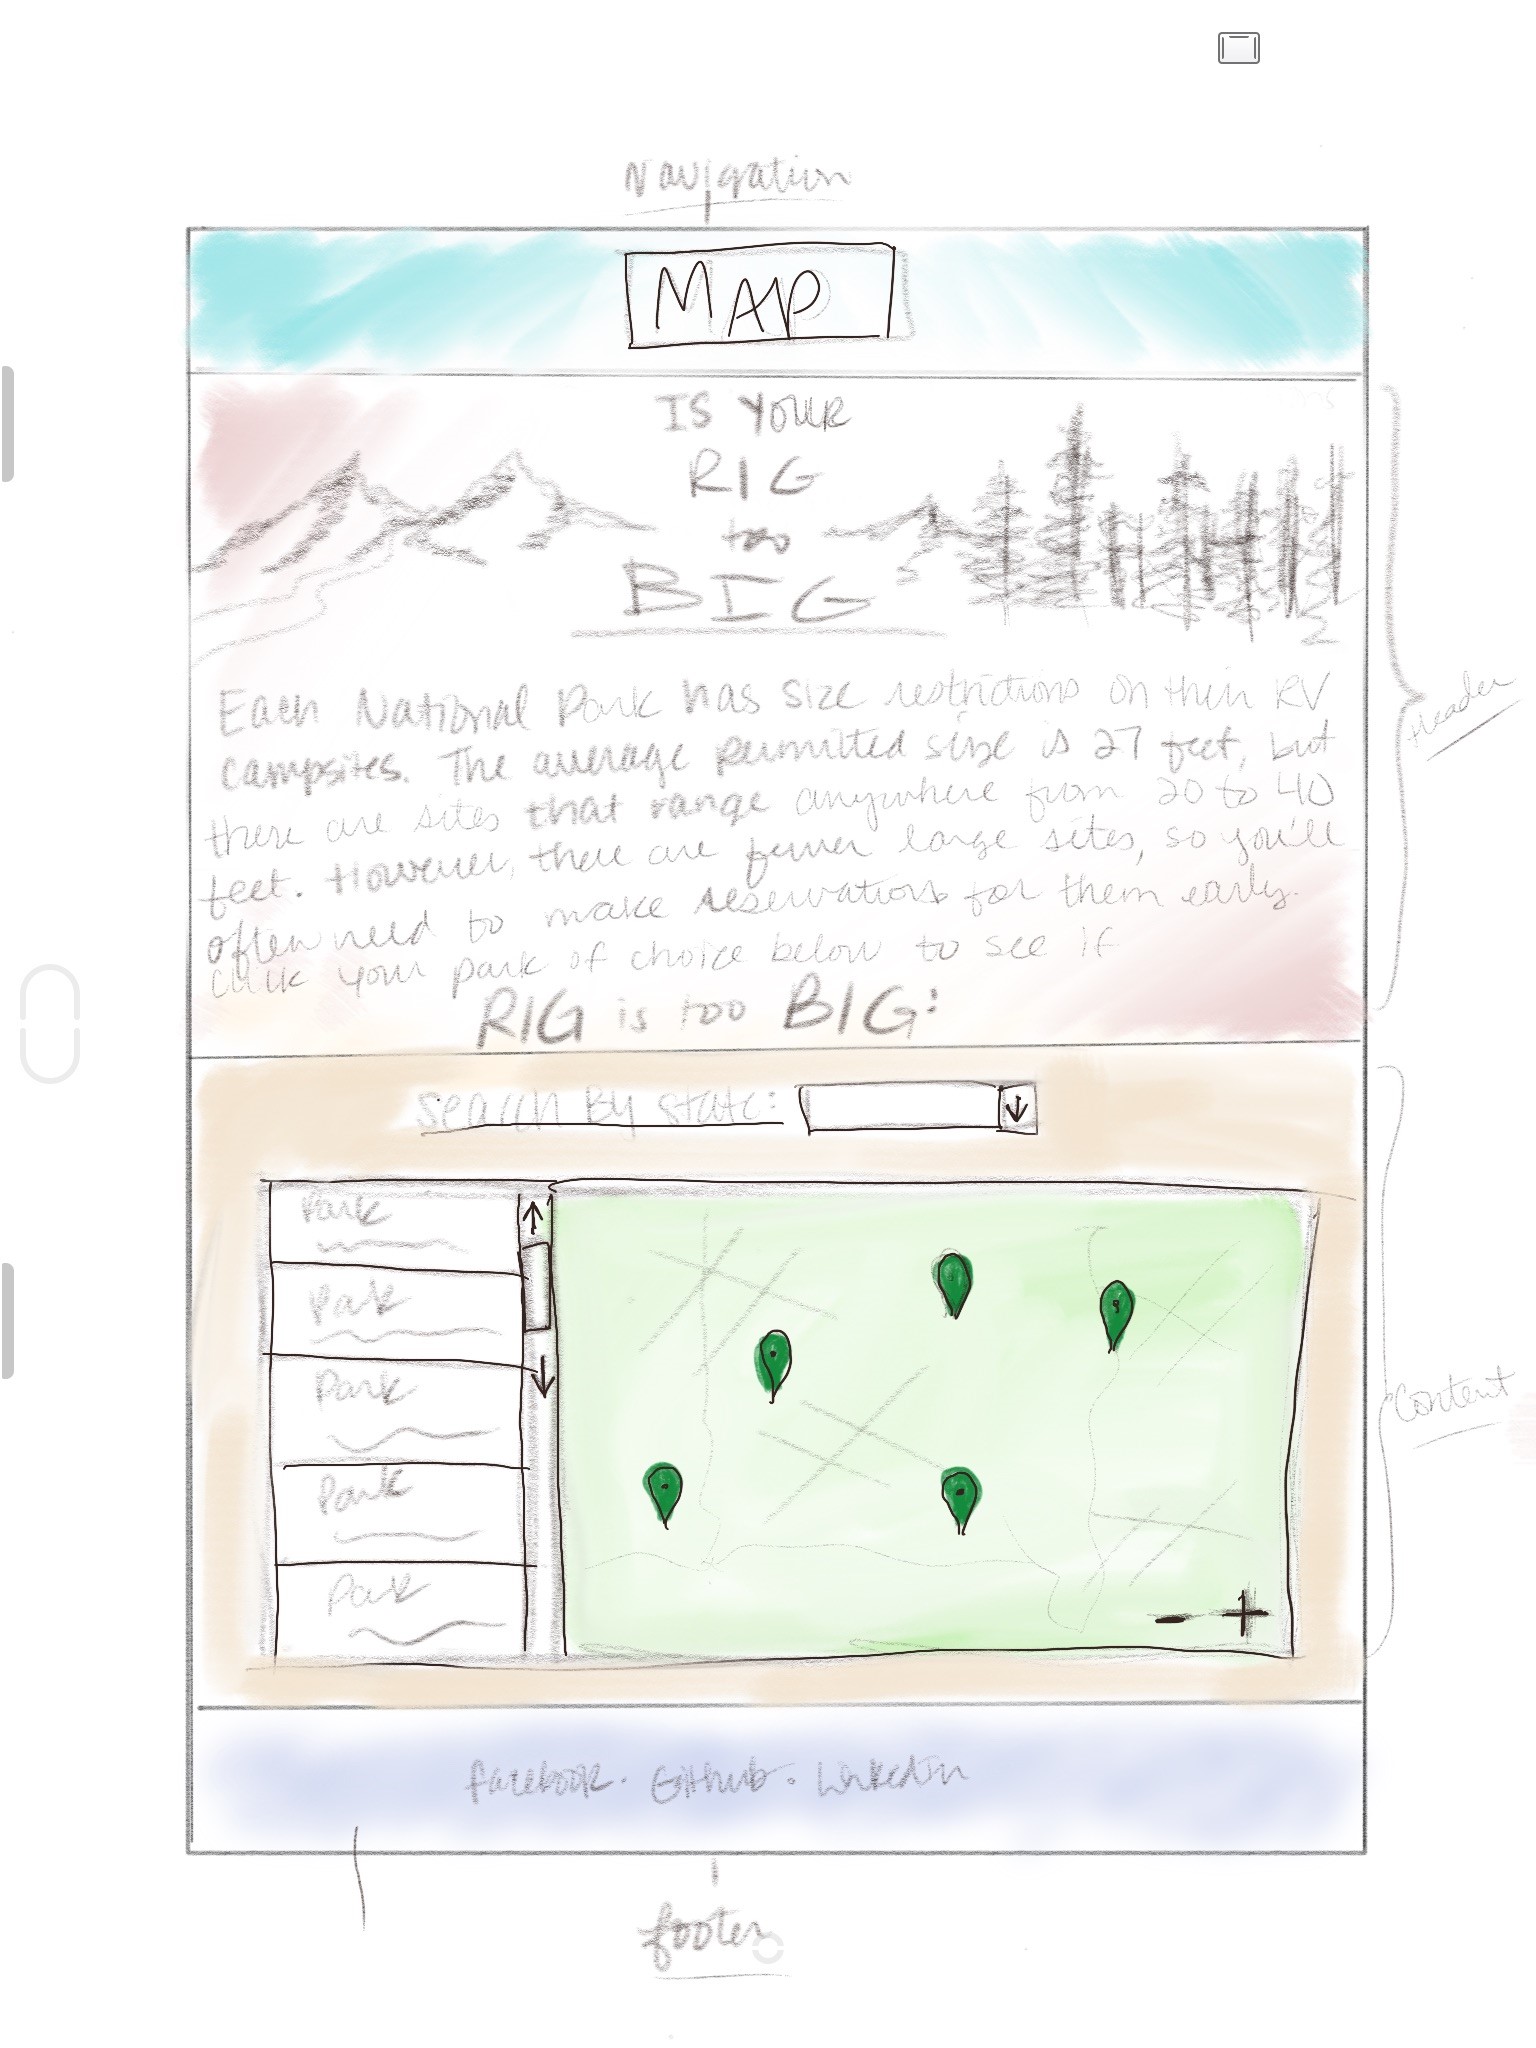 Navigation
MAP
IS YOUR
RIG
too
BIG
Each National Park has size restrictions on their RV
campsites. The average permitted size is 27 feet, but
there are sites that range anywhere from 20 to 40
feet. However, there are fewer large sites, so you'll
often need to make reservations for them early.
Click your park of choice below to see if
RIG is too BIG:
Header
Search By State:
Park
Park
Park
Park
Park
Content
facebook · GitHub · LinkedIn
footer